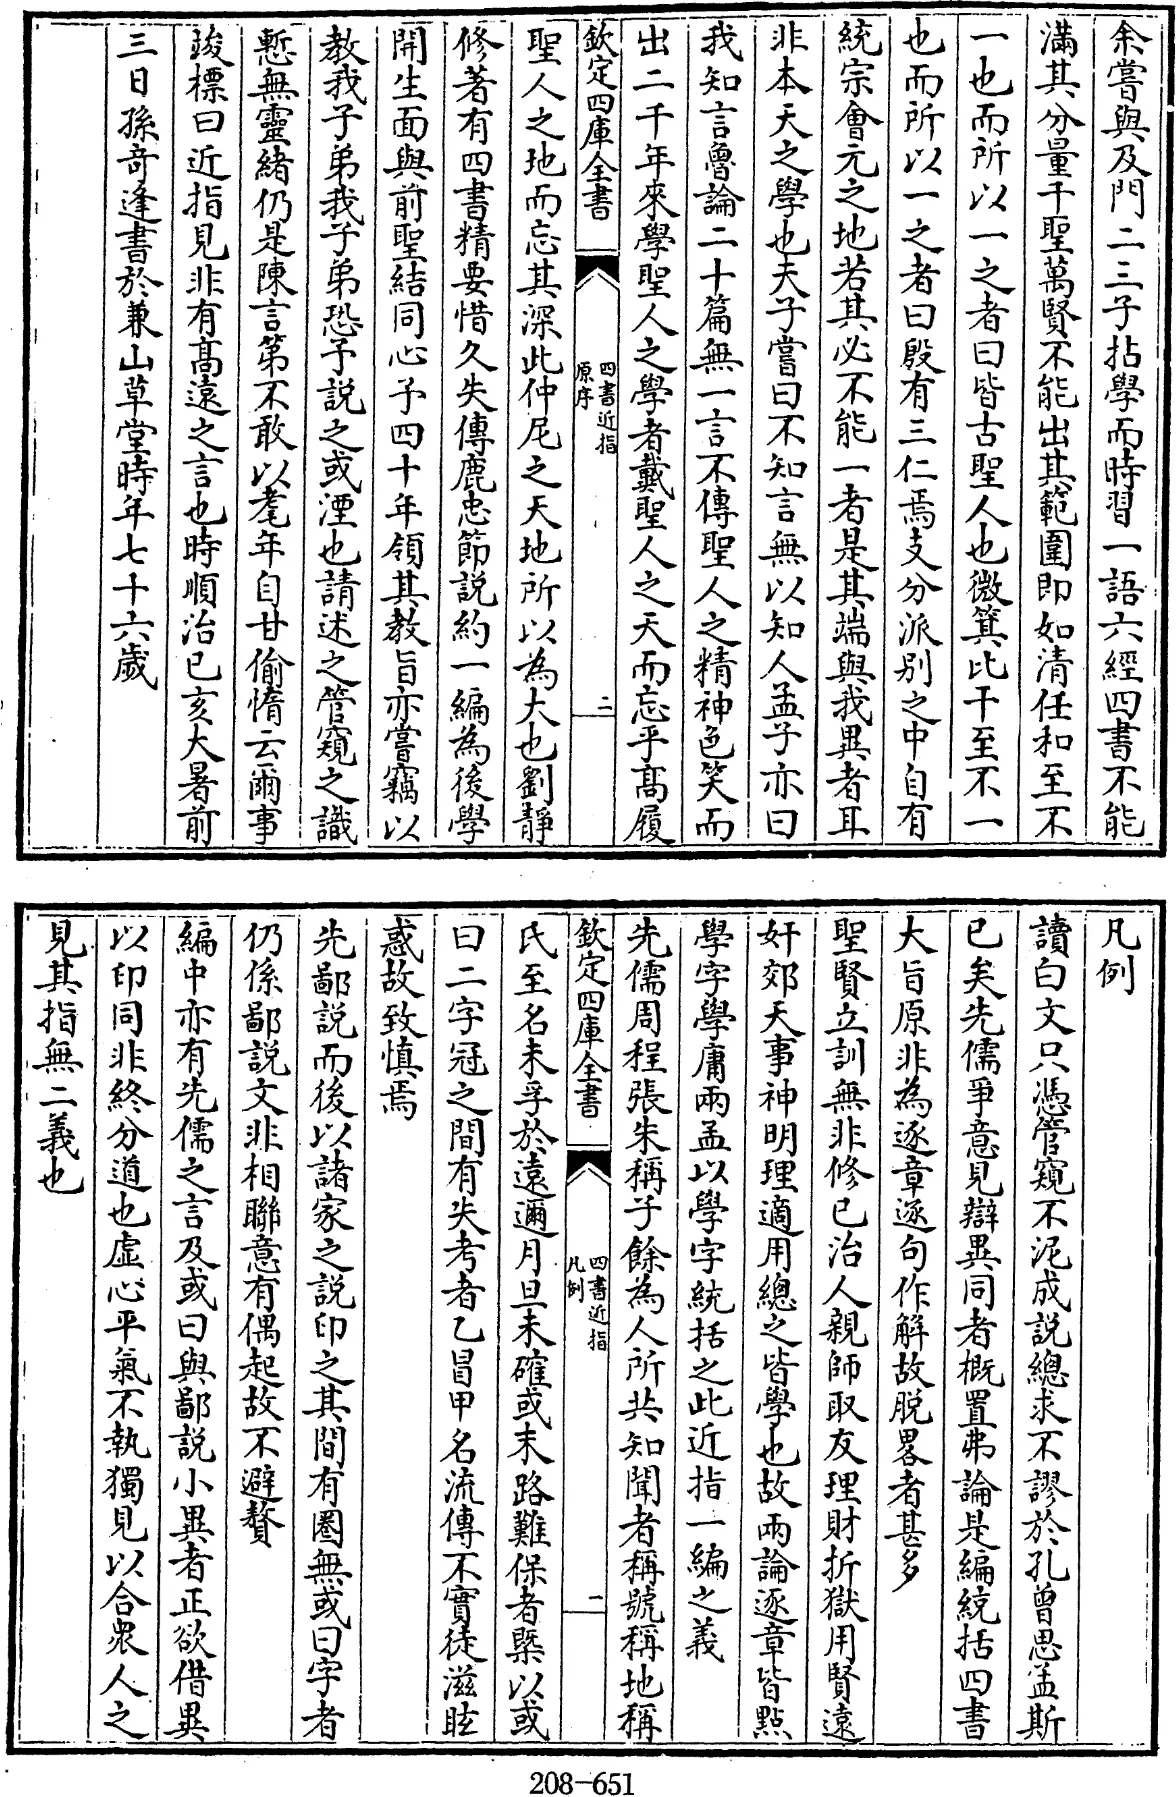 余嘗與及門二三子拈學而時習一語六經四書不能
滿其分量千聖萬賢不能出其範圍即如清任和至不
一也而所以一之者曰皆古聖人也微箕比干至不一
也而所以一之者曰殷有三仁焉支分派别之中自有
統宗會元之地若其必不能一者是其端與我異者耳
非本天之學也夫子嘗曰不知言無以知人孟子亦曰
我知言魯論二十篇無一言不傳聖人之精神色笑而
出二千年來學聖人之學者戴聖人之天而忘乎髙履
欽定四庫全書
四書近指
原序
二
聖人之地而忘其深此仲尼之天地所以為大也劉靜
修著有四書精要惜久失傳鹿忠節説約一編為後學
開生面與前聖結同心予四十年領其教旨亦嘗竊以
教我子弟我子弟恐予説之或湮也請述之管窺之識
慙無靈緒仍是陳言第不敢以耄年自甘偷惰云爾事
竣標曰近指見非有髙遠之言也時順治己亥大暑前
三日孫奇逢書於兼山草堂時年七十六歲
凡例
讀白文只憑管窺不泥成説總求不謬於孔曽思孟斯
已矣先儒爭意見辯異同者概置弗論是編統括四書
大旨原非為逐章逐句作解故脱畧者甚多
聖賢立訓無非修已治人親師取友理財折獄用賢遠
奸郊天事神明理適用總之皆學也故兩論逐章皆點
學字學庸兩孟以學字統括之此近指一編之義
先儒周程張朱稱子餘為人所共知聞者稱號稱地稱
欽定四庫全書
四書近指
凡例
一
氏至名未孚於遠邇月旦未確或末路難保者槩以或
曰二字冠之間有失考者乙冒甲名流傳不實徒滋眩
惑故致慎焉
先鄙説而後以諸家之説印之其間有圏無或曰字者
仍係鄙説文非相聯意有偶起故不避贅
編中亦有先儒之言及或曰與鄙説小異者正欲借異
以印同非終分道也虛心平氣不執獨見以合衆人之
見其指無二義也
208-651